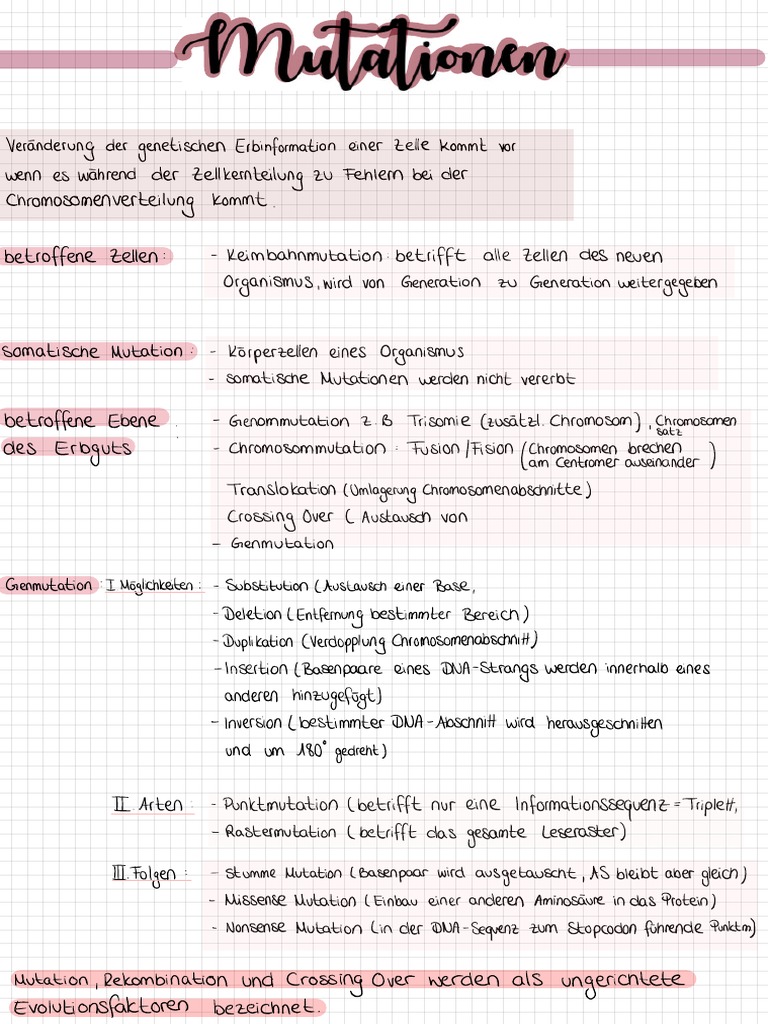 Mutationen
Veränderung der genetischen Erbinformation einer Zelle kommt vor
wenn es während der Zellkernteilung zu Fehlern bei der
Chromosomenverteilung kommt.
betroffene Zellen: - Keimbahnmutation: betrifft alle Zellen des neuen
Organismus, wird von Generation zu Generation weitergegeben
somatische Mutation: - Körperzellen eines Organismus
- somatische Mutationen werden nicht vererbt
betroffene Ebene - Genommutation z.B Trisomie (zusätzl. Chromosom), Chromosomen
satz
des Erbguts : - Chromosommutation: Fusion/Fision (Chromosomen brechen
am Centromer auseinander)
Translokation (Umlagerung Chromosomenabschnitte)
Crossing Over ( Austausch von
- Genmutation
Genmutation: I Möglichkeiten: - Substitution (Austausch einer Base,
- Deletion (Entfernung bestimmter Bereich)
- Duplikation (Verdopplung Chromosomenabschnitt)
- Insertion (Basenpaare eines DNA-Strangs werden innerhalb eines
anderen hinzugefügt)
- Inversion (bestimmter DNA-Abschnitt wird herausgeschnitten
und um 180° gedreht)
II. Arten: - Punktmutation (betrifft nur eine Informationssequenz = Triplett,
- Rastermutation (betrifft das gesamte Leseraster)
III. Folgen: - Stumme Mutation (Basenpaar wird ausgetauscht, AS bleibt aber gleich)
- Missense Mutation (Einbau einer anderen Aminosäure in das Protein)
- Nonsense Mutation (in der DNA-Sequenz zum Stopcodon führende Punktm)
Mutation, Rekombination und Crossing Over werden als ungerichtete
Evolutionsfaktoren bezeichnet.